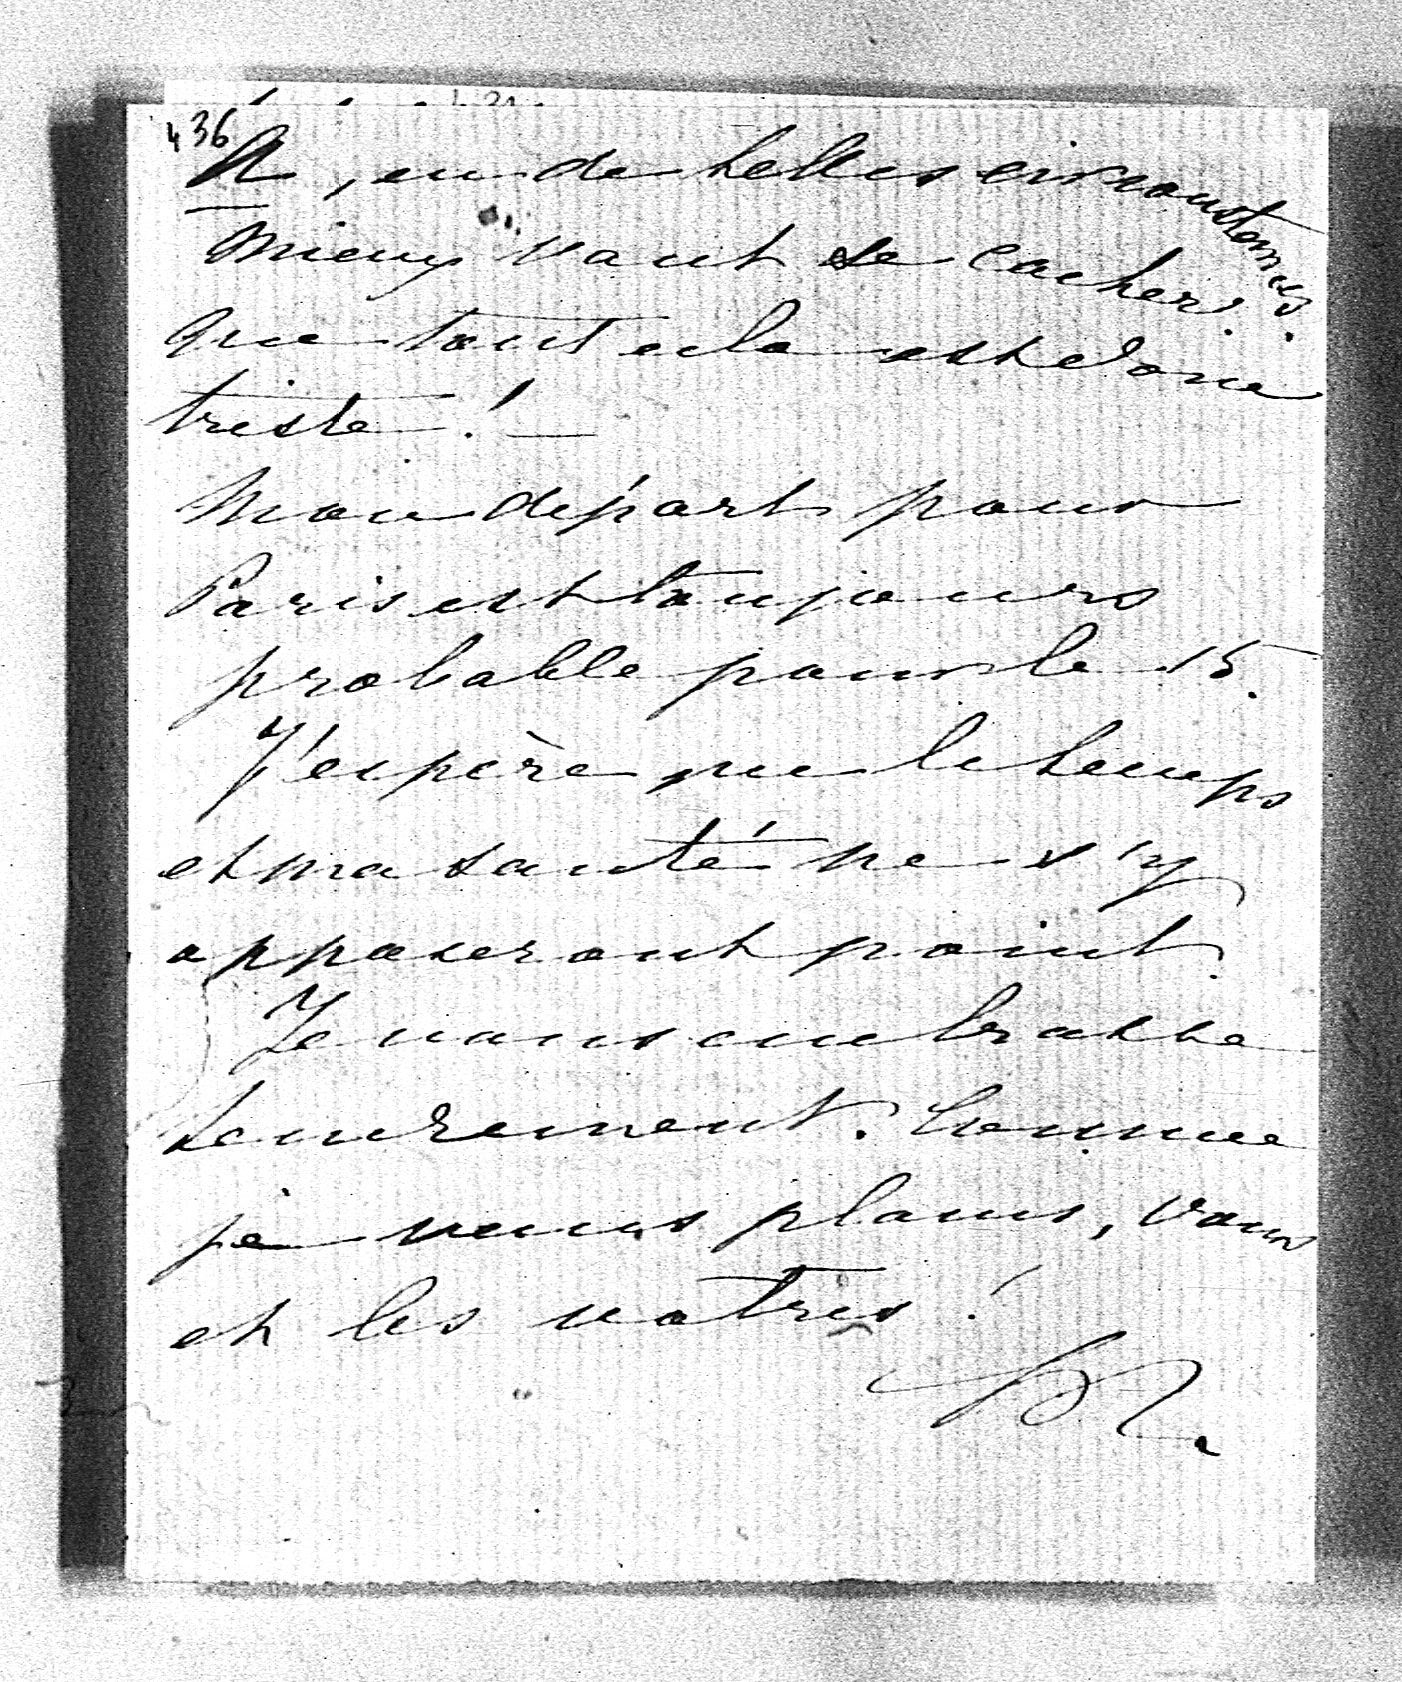 436
A, en de telles circonstances.
Mieux vaut se cacher.
Que tout cela est donc
triste! —
Mon départ pour
Paris est toujours
probable pour le 15.
J'espère que le temps
et ma santé ne s'y
opposeront point.
Je vous embrasse
tendrement. Comme
je vous plains, vous
et les vôtres!